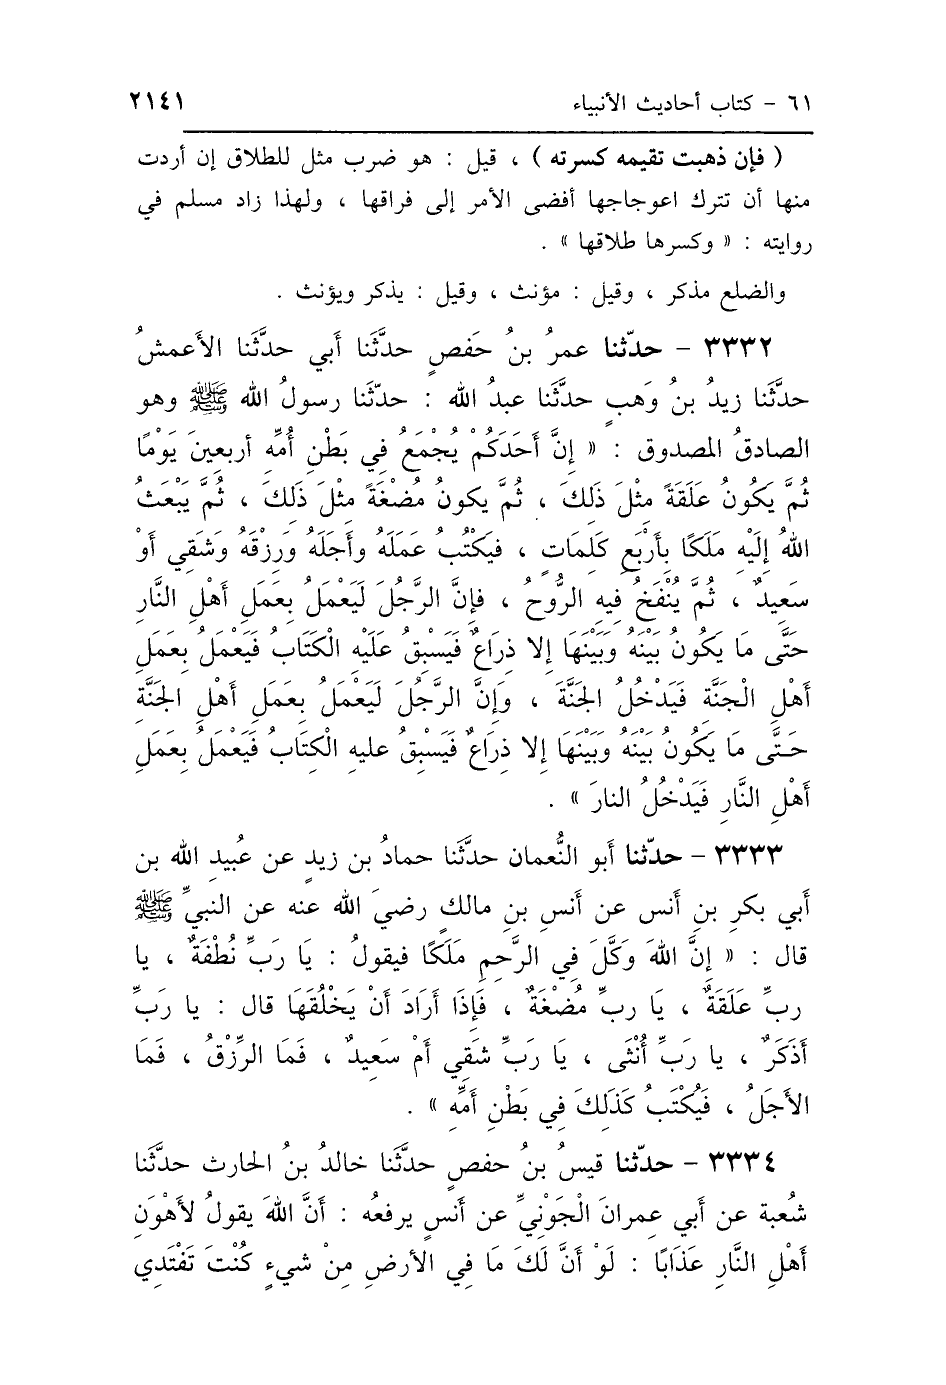 ٦١ - كتاب أحاديث الأنبياء ٢١٤١
( فإن ذهبت تقيمه كسرته ) ، قيل : هو ضرب مثل للطلاق إن أردت
منها أن تترك اعوجاجها أفضى الأمر إلى فراقها ، ولهذا زاد مسلم في
روايته : « وكسرها طلاقها » .
والضلع مذكر ، وقيل : مؤنث ، وقيل : يذكر ويؤنث .
٣٣٣٢ - حدّثنا عمرُ بنُ حَفصٍ حدَّثَنا أَبي حدَّثَنا الأَعمشُ
حدَّثَنا زيدُ بنُ وَهبٍ حدَّثَنا عبدُ الله : حدّثَنا رسولُ الله ﷺ وهو
الصادقُ المصدوق : « إِنَّ أَحَدَكُمْ يُجْمَعُ فِي بَطْنِ أُمِّهِ أربعينَ يَوْمًا
ثُمَّ يَكُونُ عَلَقَةً مثْلَ ذَلِكَ ، ثُمَّ يكونُ مُضْغَةً مثْلَ ذَلِكَ ، ثُمَّ يَبْعَثُ
اللهُ إِلَيْهِ مَلَكًا بِأَرْبَعِ كَلِمَاتٍ ، فَيَكْتُبُ عَمَلَهُ وأَجَلَهُ وَرِزْقَهُ وَشَقِي أَوْ
سَعِيدٌ ، ثُمَّ يُنْفَخُ فِيهِ الرُّوحُ ، فإنَّ الرَّجُلَ لَيَعْمَلُ بِعَمَلِ أَهْلِ النَّارِ
حَتَّى مَا يَكُونُ بَيْنَهُ وَبَيْنَهَا إلا ذِرَاعٌ فَيَسْبِقُ عَلَيْهِ الْكَتَابُ فَيَعْمَلُ بِعَمَلِ
أَهْلِ الْجَنَّةِ فَيَدْخُلُ الجَنَّةَ ، وَإِنَّ الرَّجُلَ لَيَعْمَلُ بِعَمَلِ أَهْلِ الجَنَّةِ
حَتَّى مَا يَكُونُ بَيْنَهُ وَبَيْنَهَا إلا ذِرَاعٌ فَيَسْبِقُ عليهِ الْكِتَابُ فَيَعْمَلُ بِعَمَلِ
أَهْلِ النَّارِ فَيَدْخُلُ النارَ » .
٣٣٣٣ - حدّثنا أَبو النُّعمان حدَّثَنا حمادُ بن زيدٍ عن عُبيدِ الله بن
أَبي بكرِ بنِ أَنس عن أَنسِ بنِ مالكٍ رضيَ الله عنه عنِ النبيِّ ﷺ
قال : « إِنَّ اللهَ وَكَّلَ فِي الرَّحِمِ مَلَكًا فيقولُ : يَا رَبِّ نُطْفَةٌ ، يا
ربِّ عَلَقَةٌ ، يَا ربِّ مُضْغَةٌ ، فَإِذَا أَرَادَ أَنْ يَخْلُقَهَا قال : يا رَبِّ
أَذَكَرٌ ، يا رَبِّ أُنْثَى ، يَا رَبِّ شَقِي أَمْ سَعِيدٌ ، فَمَا الرِّزْقُ ، فَمَا
الأَجَلُ ، فَيُكْتَبُ كَذَلِكَ فِي بَطْنِ أُمِّهِ » .
٣٣٣٤ - حدّثنا قيسُ بنُ حفصٍ حدَّثَنا خالدُ بنُ الحارث حدَّثَنا
شُعبة عن أَبي عِمرانَ الْجَوْنِيِّ عن أَنسٍ يرفعُه : أَنَّ اللهَ يقولُ لأَهْوَنِ
أَهْلِ النَّارِ عَذَابًا : لَوْ أَنَّ لَكَ مَا فِي الأرضِ مِنْ شيءٍ كُنْتَ تَفْتَدِي